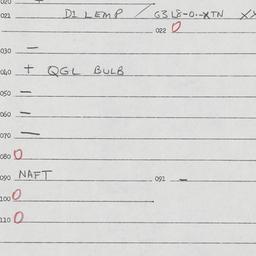 020
021 D1 LEMP / G3L8-0.-XTN XX
022 0
030 —
040 + QGL BULB
050 —
060 —
070 —
080 0
090 NAFT 091 —
100 0
110 0